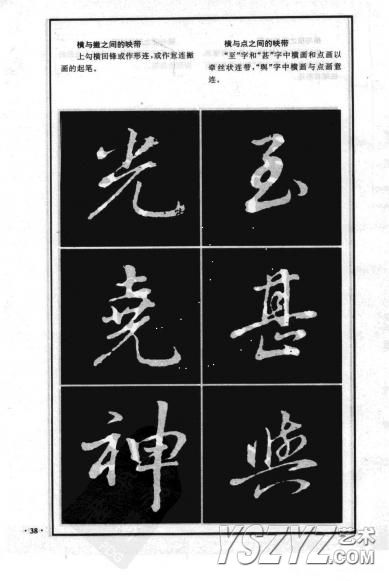 横与撇之间的映带
上勾横回锋或作形连，或作意连撇
画的起笔。
横与点之间的映带
“至”字和“甚”字中横画和点画以
牵丝状连带，“與”字中横画与点画意
连。
光 至
堯 甚
神 與
·38·
YSZYZ 艺术
.com